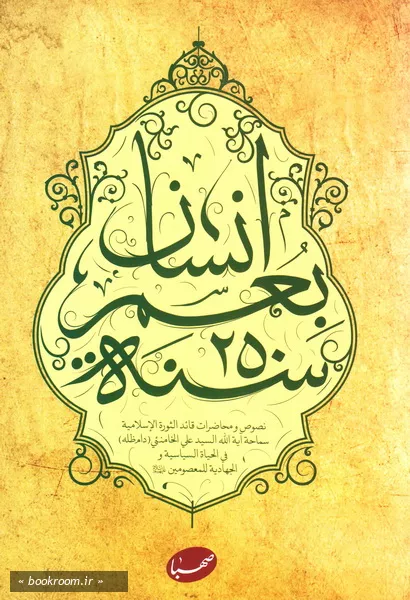 إنسان
بعمر
۲۵۰
سنة
نصوص ومحاضرات قائد الثورة الإسلامية
سماحة آية الله السيد علي الخامنئي (دام ظله)
في الحياة السياسية و
الجهادية للمعصومين
صهبا
« bookroom.ir »